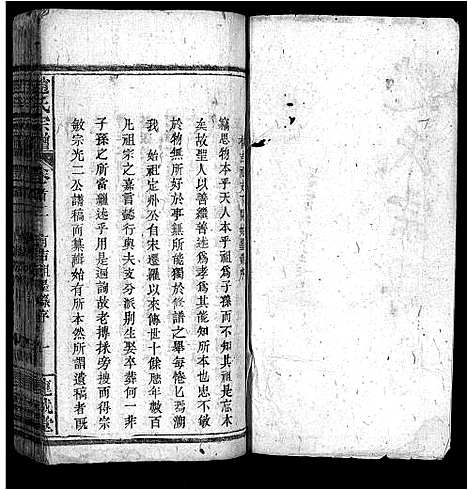 竊思物本乎天人本乎祖爲子孫而不知其祖是忘木
矣故聖人以善繼善述爲孝爲其能知所本也忠不敏
於物無所好於事無所能獨於修譜之舉每惓匕焉溯
我 始祖定州公自宋遷羅以來傳世十餘歷年數百
凡祖宗之嘉言懿行與夫支分派別生娶卒葬何一非
子孫之所當羅述乎用是遍詢故老搏採旁搜而得宗
敏宗光二公譜稿而纂輯始有所本然所謂遺稿者既
氏宗譜
卷首
序
一